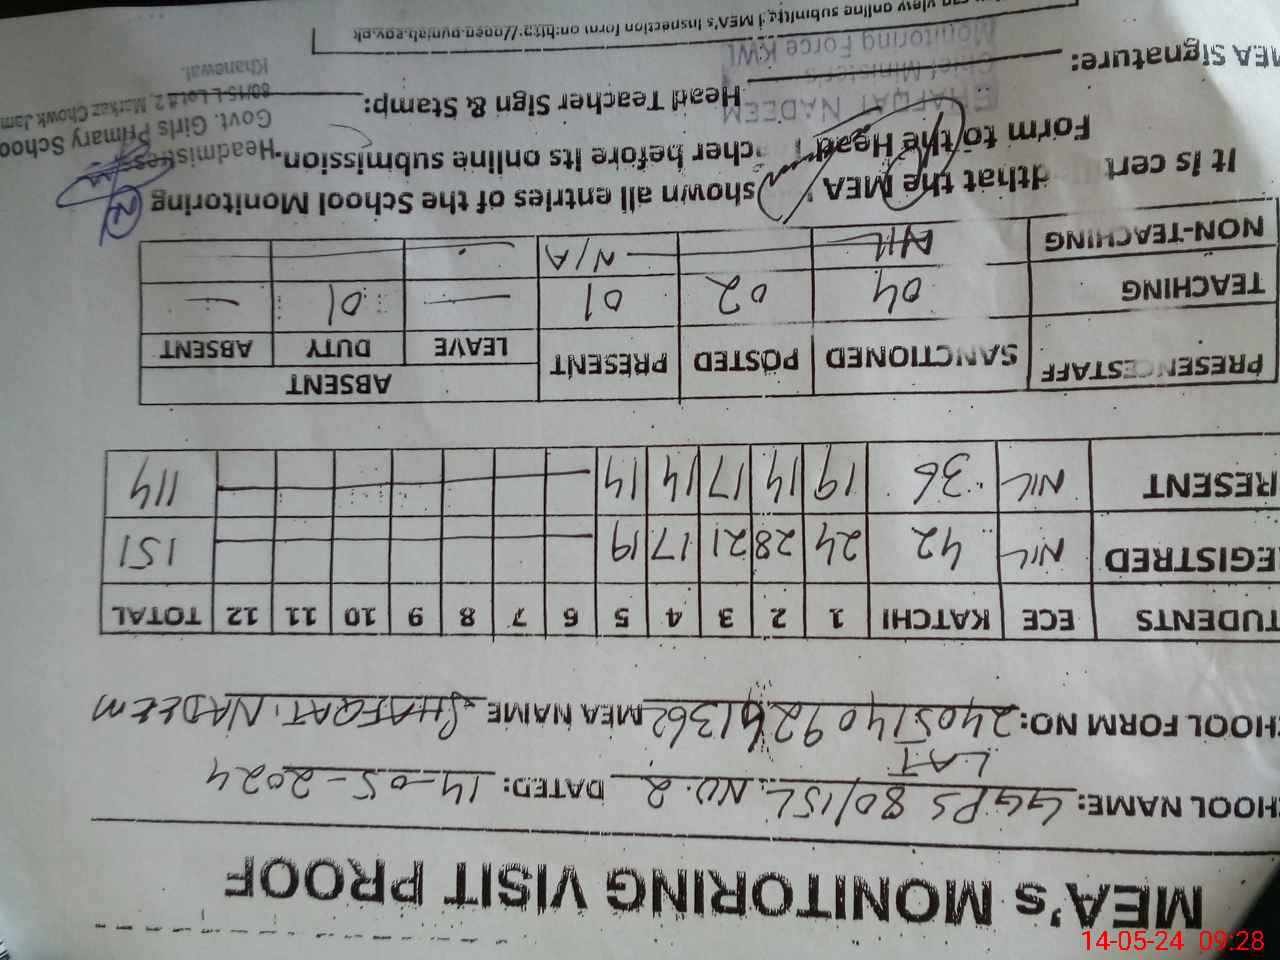 MEA's MONITORING VISIT PROOF
HOOL NAME: GGPS 80/15L NO. 2 DATED: 14-05-2024
LAT
HOOL FORM NO: MEA NAME SHAFQAT NADEEM
TUDENTS ECE KATCHI 1 2 3 4 5 6 7 8 9 10 11 12 TOTAL
EGISTRED NIL 42 24 28 21 17 19 151
RESENT NIL 36 19 14 17 14 14 114
PRESENCE STAFF SANCTIONED POSTED PRESENT ABSENT
LEAVE DUTY ABSENT
TEACHING 04 02 01 — 01 —
NON-TEACHING NIL — N/A
It is cert d that the MEA shown all entries of the School Monitoring
Form to the Head cher before its online submission.
Headmistress
Govt. Girls Primary Schoo
80/15-L Lot # 2, Markaz Chowk Jam
Khanewal.
MEA Signature: Head Teacher Sign & Stamp:
SHAFQAT NADEEM
Chief Minister's
Monitoring Force KWL
view online submitted MEA's Inspection form on:http://open.punjab.gov.pk
14-05-24 09:28